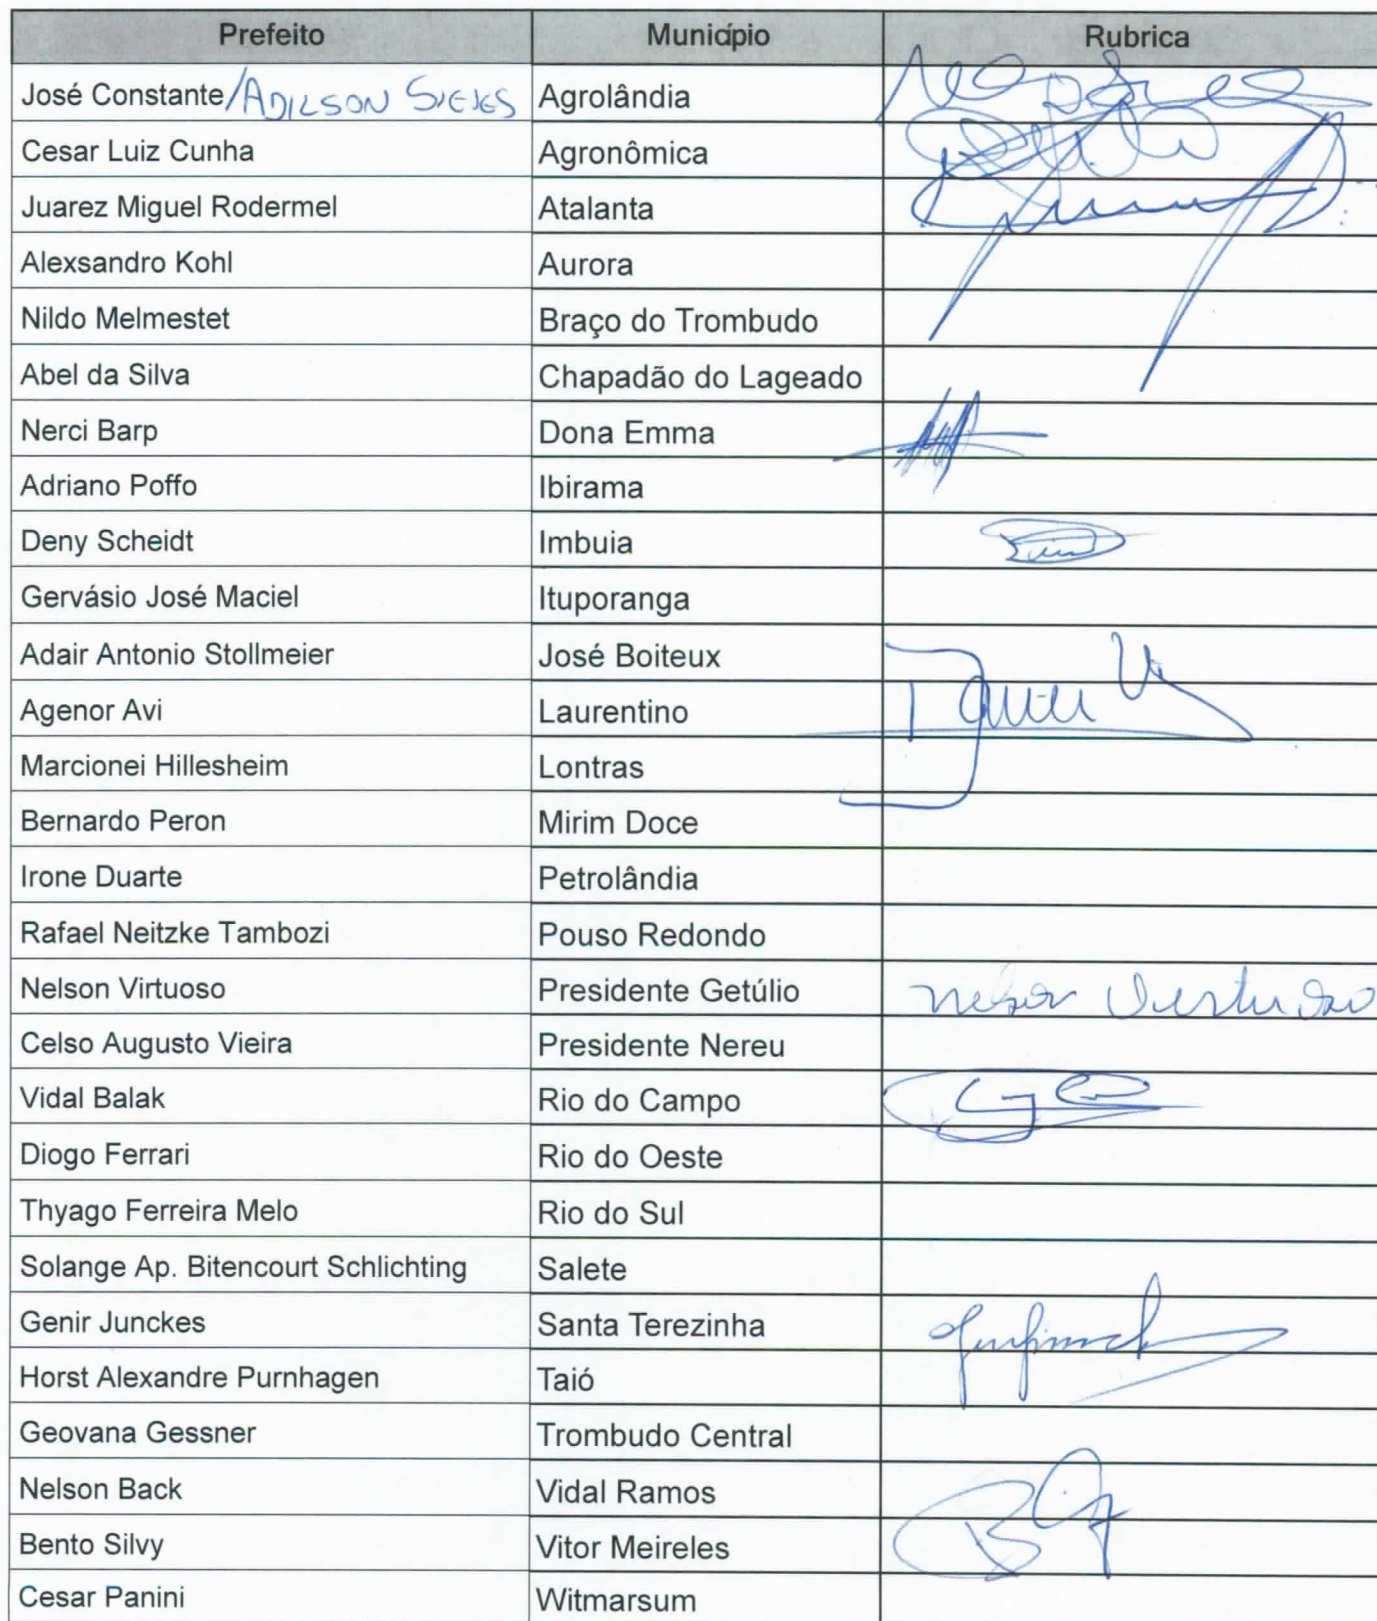 Prefeito Município Rubrica
José Constante/ADILSON Agrolândia
Cesar Luiz Cunha Agronômica
Juarez Miguel Rodermel Atalanta
Alexsandro Kohl Aurora
Nildo Melmestet Braço do Trombudo
Abel da Silva Chapadão do Lageado
Nerci Barp Dona Emma
Adriano Poffo Ibirama
Deny Scheidt Imbuia
Gervásio José Maciel Ituporanga
Adair Antonio Stollmeier José Boiteux
Agenor Avi Laurentino
Marcionei Hillesheim Lontras
Bernardo Peron Mirim Doce
Irone Duarte Petrolândia
Rafael Neitzke Tambozi Pouso Redondo
Nelson Virtuoso Presidente Getúlio Nelson Virtuoso
Celso Augusto Vieira Presidente Nereu
Vidal Balak Rio do Campo
Diogo Ferrari Rio do Oeste
Thyago Ferreira Melo Rio do Sul
Solange Ap. Bitencourt Schlichting Salete
Genir Junckes Santa Terezinha
Horst Alexandre Purnhagen Taió
Geovana Gessner Trombudo Central
Nelson Back Vidal Ramos
Bento Silvy Vitor Meireles
Cesar Panini Witmarsum